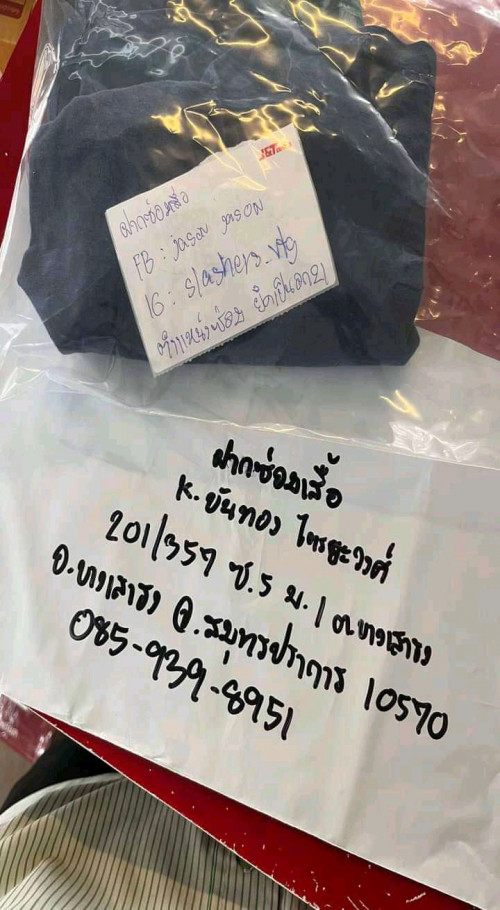 J&T
ฝากซ่อมเสื้อ
FB : jason jason
IG : slashers_vtg
ตำแหน่งซ่อม
ฝากซ่อมเสื้อ
K. ขันทอง ไตรยะวงศ์
201/357 ซ.5 ม.1 ต.บางเสาธง
อ.บางเสาธง จ.สมุทรปราการ 10570
085-939-8951